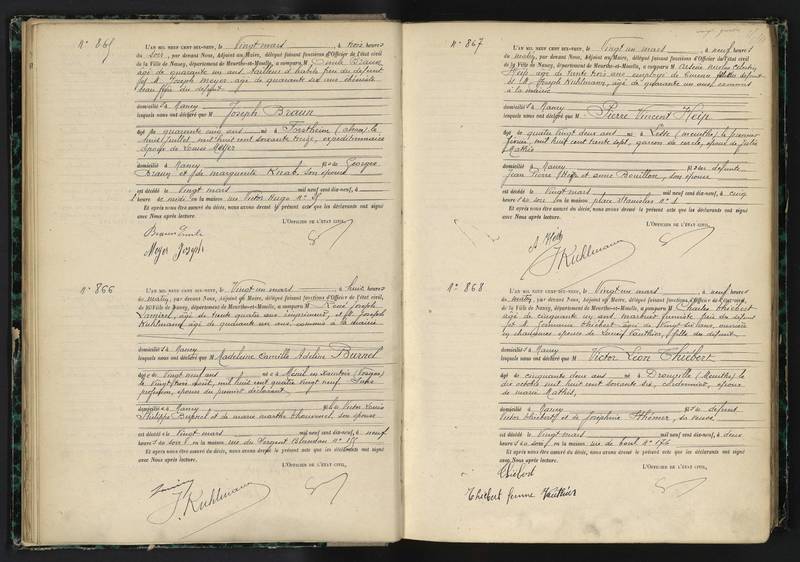 N° 865
L'AN MIL NEUF CENT DIX-NEUF, le Vingt mars à trois heures
du soir, par devant Nous, Adjoint au Maire, délégué faisant fonctions d'Officier de l'état civil,
de la Ville de Nancy, département de Meurthe-et-Moselle, a comparu M. Emile Braun
âgé de quarante un ans tailleur d'habits frère du défunt
et M. Joseph Meyer, âgé de quarante six ans ébéniste
beau frère du défunt
domiciliés à Nancy
lesquels nous ont déclaré que M Joseph Braun
âgé de quarante cinq ans né à Forstheim (alsace) le
huit juillet mil huit cent soixante treize, expéditionnaire
époux de Louise Meyer
domicilié à Nancy fils de Georges
Braun et de marguerite Knab, son épouse
est décédé le vingt mars mil neuf cent dix-neuf, à
heure de midi en la maison rue Victor Hugo n°
Et après nous être assuré du décès, nous avons dressé le présent acte que les déclarants ont signé
avec Nous après lecture.
L'OFFICIER DE L'ÉTAT CIVIL,
Braun Emile
Meyer Joseph
N° 866
L'AN MIL NEUF CENT DIX-NEUF, le Vingt un mars à huit heures
du matin, par devant Nous, Adjoint au Maire, délégué faisant fonctions d'Officier de l'état civil,
de la Ville de Nancy, département de Meurthe-et-Moselle, a comparu M. René Joseph
âgé de trente quatre ans et M. Joseph
Kuhlmann, âgé de quarante un ans, commis à la mairie
domiciliés à Nancy
lesquels nous ont déclaré que M Madeleine Camille Adeline Burnel
âgée de vingt neuf ans née à Ménil en Xaintois (Vosges)
le vingt trois août, mil huit cent quatre vingt neuf Sans
profession, épouse du premier déclarant
domiciliée à Nancy fille de Victor Louis
Philippe Burnel et de marie marthe Thouvenel, son épouse
est décédée le vingt mars mil neuf cent dix-neuf, à neuf
heures du soir en la maison rue du Sergent Blandan n°
Et après nous être assuré du décès, nous avons dressé le présent acte que les déclarants ont signé
avec Nous après lecture.
L'OFFICIER DE L'ÉTAT CIVIL,
J. Kuhlmann
N° 867
L'AN MIL NEUF CENT DIX-NEUF, le Vingt un mars à neuf heures
du matin, par devant Nous, Adjoint au Maire, délégué faisant fonctions d'Officier de l'état civil,
de la Ville de Nancy, département de Meurthe-et-Moselle, a comparu M. Nicolas
Heip âgé de trente trois ans employé de bureau du défunt
et M. Joseph Kuhlmann, âgé de quarante un ans commis
à la mairie
domiciliés à Nancy
lesquels nous ont déclaré que M Pierre Vincent Heip
âgé de quatre vingt deux ans né à (meurthe) le
mil huit cent trente sept, garçon de cercle, époux de
Mathis
domicilié à Nancy fils des défunts
Jean Pierre Heip et anne Bouillon, son épouse
est décédé le vingt mars mil neuf cent dix-neuf, à cinq
heures du soir en la maison place Stanislas n°
Et après nous être assuré du décès, nous avons dressé le présent acte que les déclarants ont signé
avec Nous après lecture.
L'OFFICIER DE L'ÉTAT CIVIL,
A. Heip
J. Kuhlmann
N° 868
L'AN MIL NEUF CENT DIX-NEUF, le Vingt un mars à neuf heures
du matin, par devant Nous, Adjoint au Maire, délégué faisant fonctions d'Officier de l'état civil,
de la Ville de Nancy, département de Meurthe-et-Moselle, a comparu M. Charles Thiébert
âgé de cinquante un ans, fumiste frère du défunt
et M. Thiébert âgée de vingt ans, ouvrière
en chaussures épouse de Vauthier, fille du défunt
domiciliés à Nancy
lesquels nous ont déclaré que M Victor Léon Thiébert
âgé de cinquante deux ans né à Drouville (Meurthe) le
dix octobre mil huit cent soixante six, cordonnier, époux
de marie Mathis,
domicilié à Nancy fils de défunt
Victor Thiébert et de Joséphine sa veuve
est décédé le vingt mars mil neuf cent dix-neuf, à deux
heures du soir, en la maison, rue de Toul n°
Et après nous être assuré du décès, nous avons dressé le présent acte que les déclarants ont signé
avec Nous après lecture.
L'OFFICIER DE L'ÉTAT CIVIL,
Thiébert
Thiébert femme Vauthier